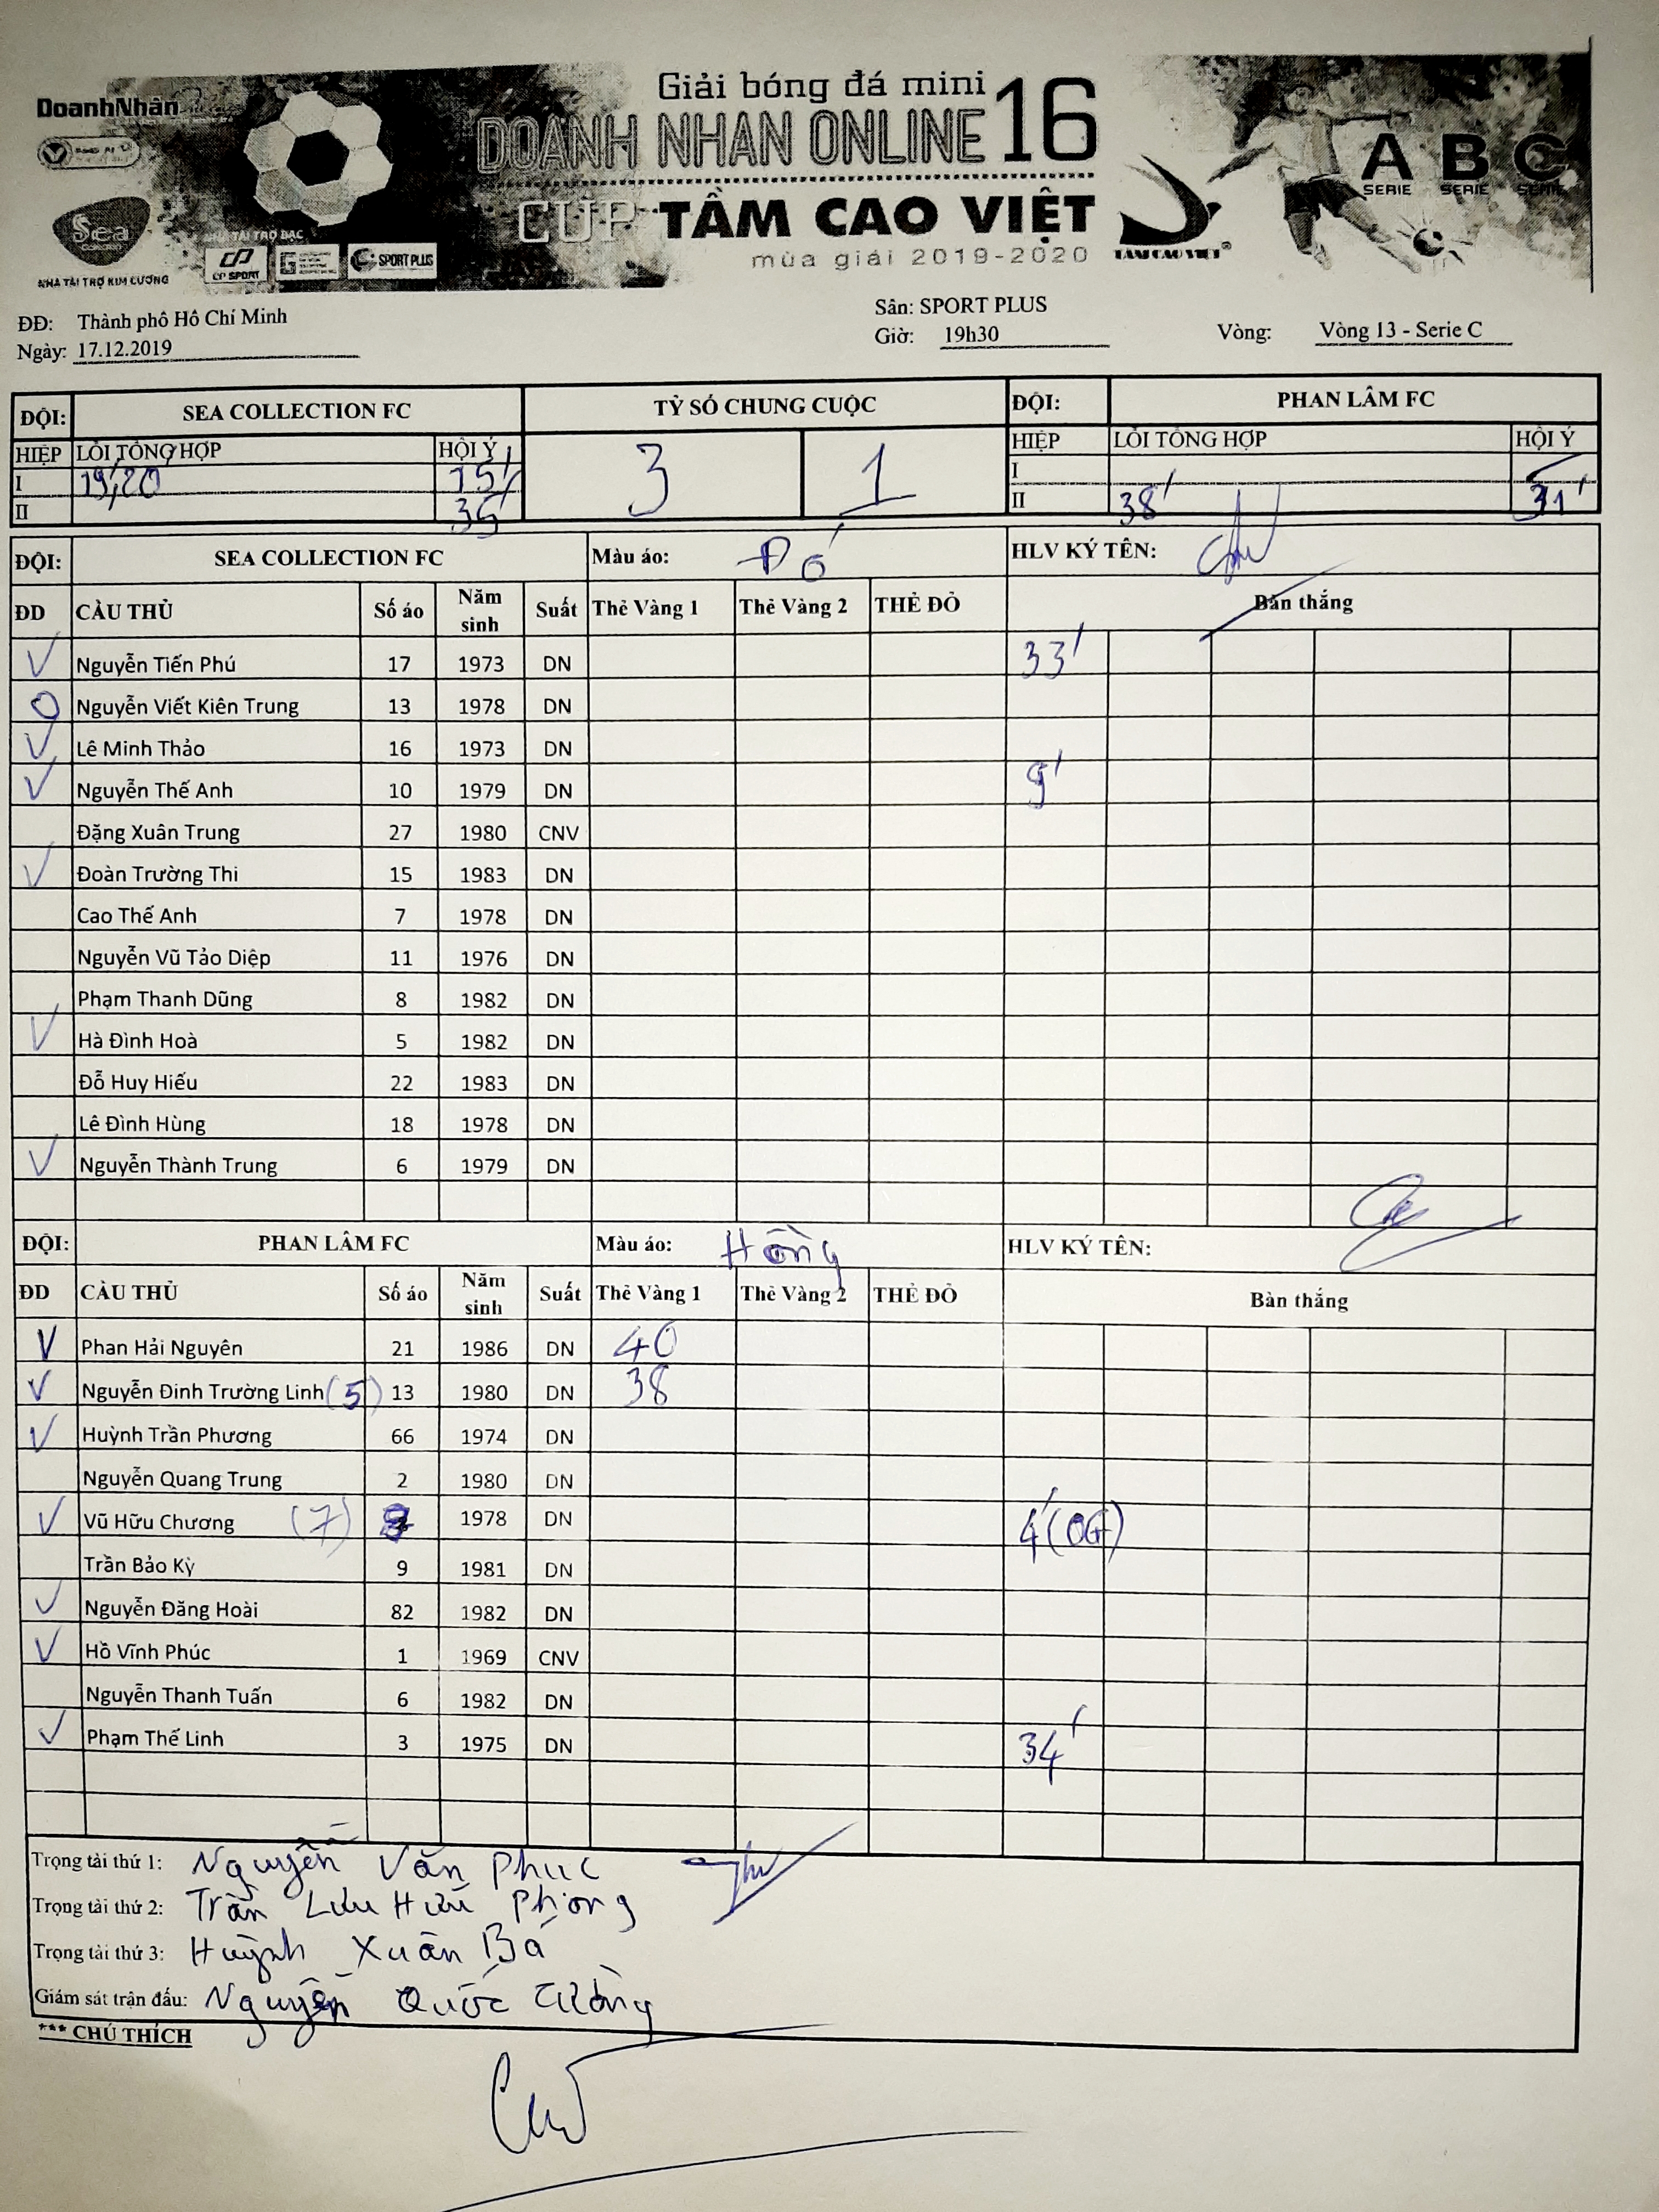 Giải bóng đá mini
DoanhNhân
DOANH NHAN ONLINE 16
A B C
SERIE SERIE SERIE
CUP TẦM CAO VIỆT
Sea
NHÀ TÀI TRỢ BẠC
CP SPORT SPORT PLUS
mùa giải 2019-2020
TẦM CAO VIỆT®
NHÀ TÀI TRỢ KIM CƯƠNG
ĐĐ: Thành phố Hồ Chí Minh Sân: SPORT PLUS
Ngày: 17.12.2019 Giờ: 19h30 Vòng: Vòng 13 - Serie C
ĐỘI: SEA COLLECTION FC TỶ SỐ CHUNG CUỘC ĐỘI: PHAN LÂM FC
HIỆP LỖI TỔNG HỢP HỘI Ý 3 1 HIỆP LỖI TỔNG HỢP HỘI Ý
I 19',20' 15' I
II 35' II 38' 31'
ĐỘI: SEA COLLECTION FC Màu áo: Đỏ HLV KÝ TÊN:
ĐD CẦU THỦ Số áo Năm sinh Suất Thẻ Vàng 1 Thẻ Vàng 2 THẺ ĐỎ Bàn thắng
V Nguyễn Tiến Phú 17 1973 DN 33'
O Nguyễn Viết Kiên Trung 13 1978 DN
V Lê Minh Thảo 16 1973 DN
V Nguyễn Thế Anh 10 1979 DN 9'
Đặng Xuân Trung 27 1980 CNV
V Đoàn Trường Thi 15 1983 DN
Cao Thế Anh 7 1978 DN
Nguyễn Vũ Tảo Diệp 11 1976 DN
Phạm Thanh Dũng 8 1982 DN
V Hà Đình Hoà 5 1982 DN
Đỗ Huy Hiếu 22 1983 DN
Lê Đình Hùng 18 1978 DN
V Nguyễn Thành Trung 6 1979 DN
ĐỘI: PHAN LÂM FC Màu áo: Hồng HLV KÝ TÊN:
ĐD CẦU THỦ Số áo Năm sinh Suất Thẻ Vàng 1 Thẻ Vàng 2 THẺ ĐỎ Bàn thắng
V Phan Hải Nguyên 21 1986 DN 40
V Nguyễn Đinh Trường Linh (5) 13 1980 DN 38
V Huỳnh Trần Phương 66 1974 DN
Nguyễn Quang Trung 2 1980 DN
V Vũ Hữu Chương (7) 1978 DN 4'(OG)
Trần Bảo Kỳ 9 1981 DN
V Nguyễn Đăng Hoài 82 1982 DN
V Hồ Vĩnh Phúc 1 1969 CNV
Nguyễn Thanh Tuấn 6 1982 DN
V Phạm Thế Linh 3 1975 DN 34'
Trọng tài thứ 1: Nguyễn Văn Phuc
Trọng tài thứ 2: Trần Lưu Hữu Phong
Trọng tài thứ 3: Huỳnh Xuân Bá
Giám sát trận đấu: Nguyễn Quốc Cường
*** CHÚ THÍCH